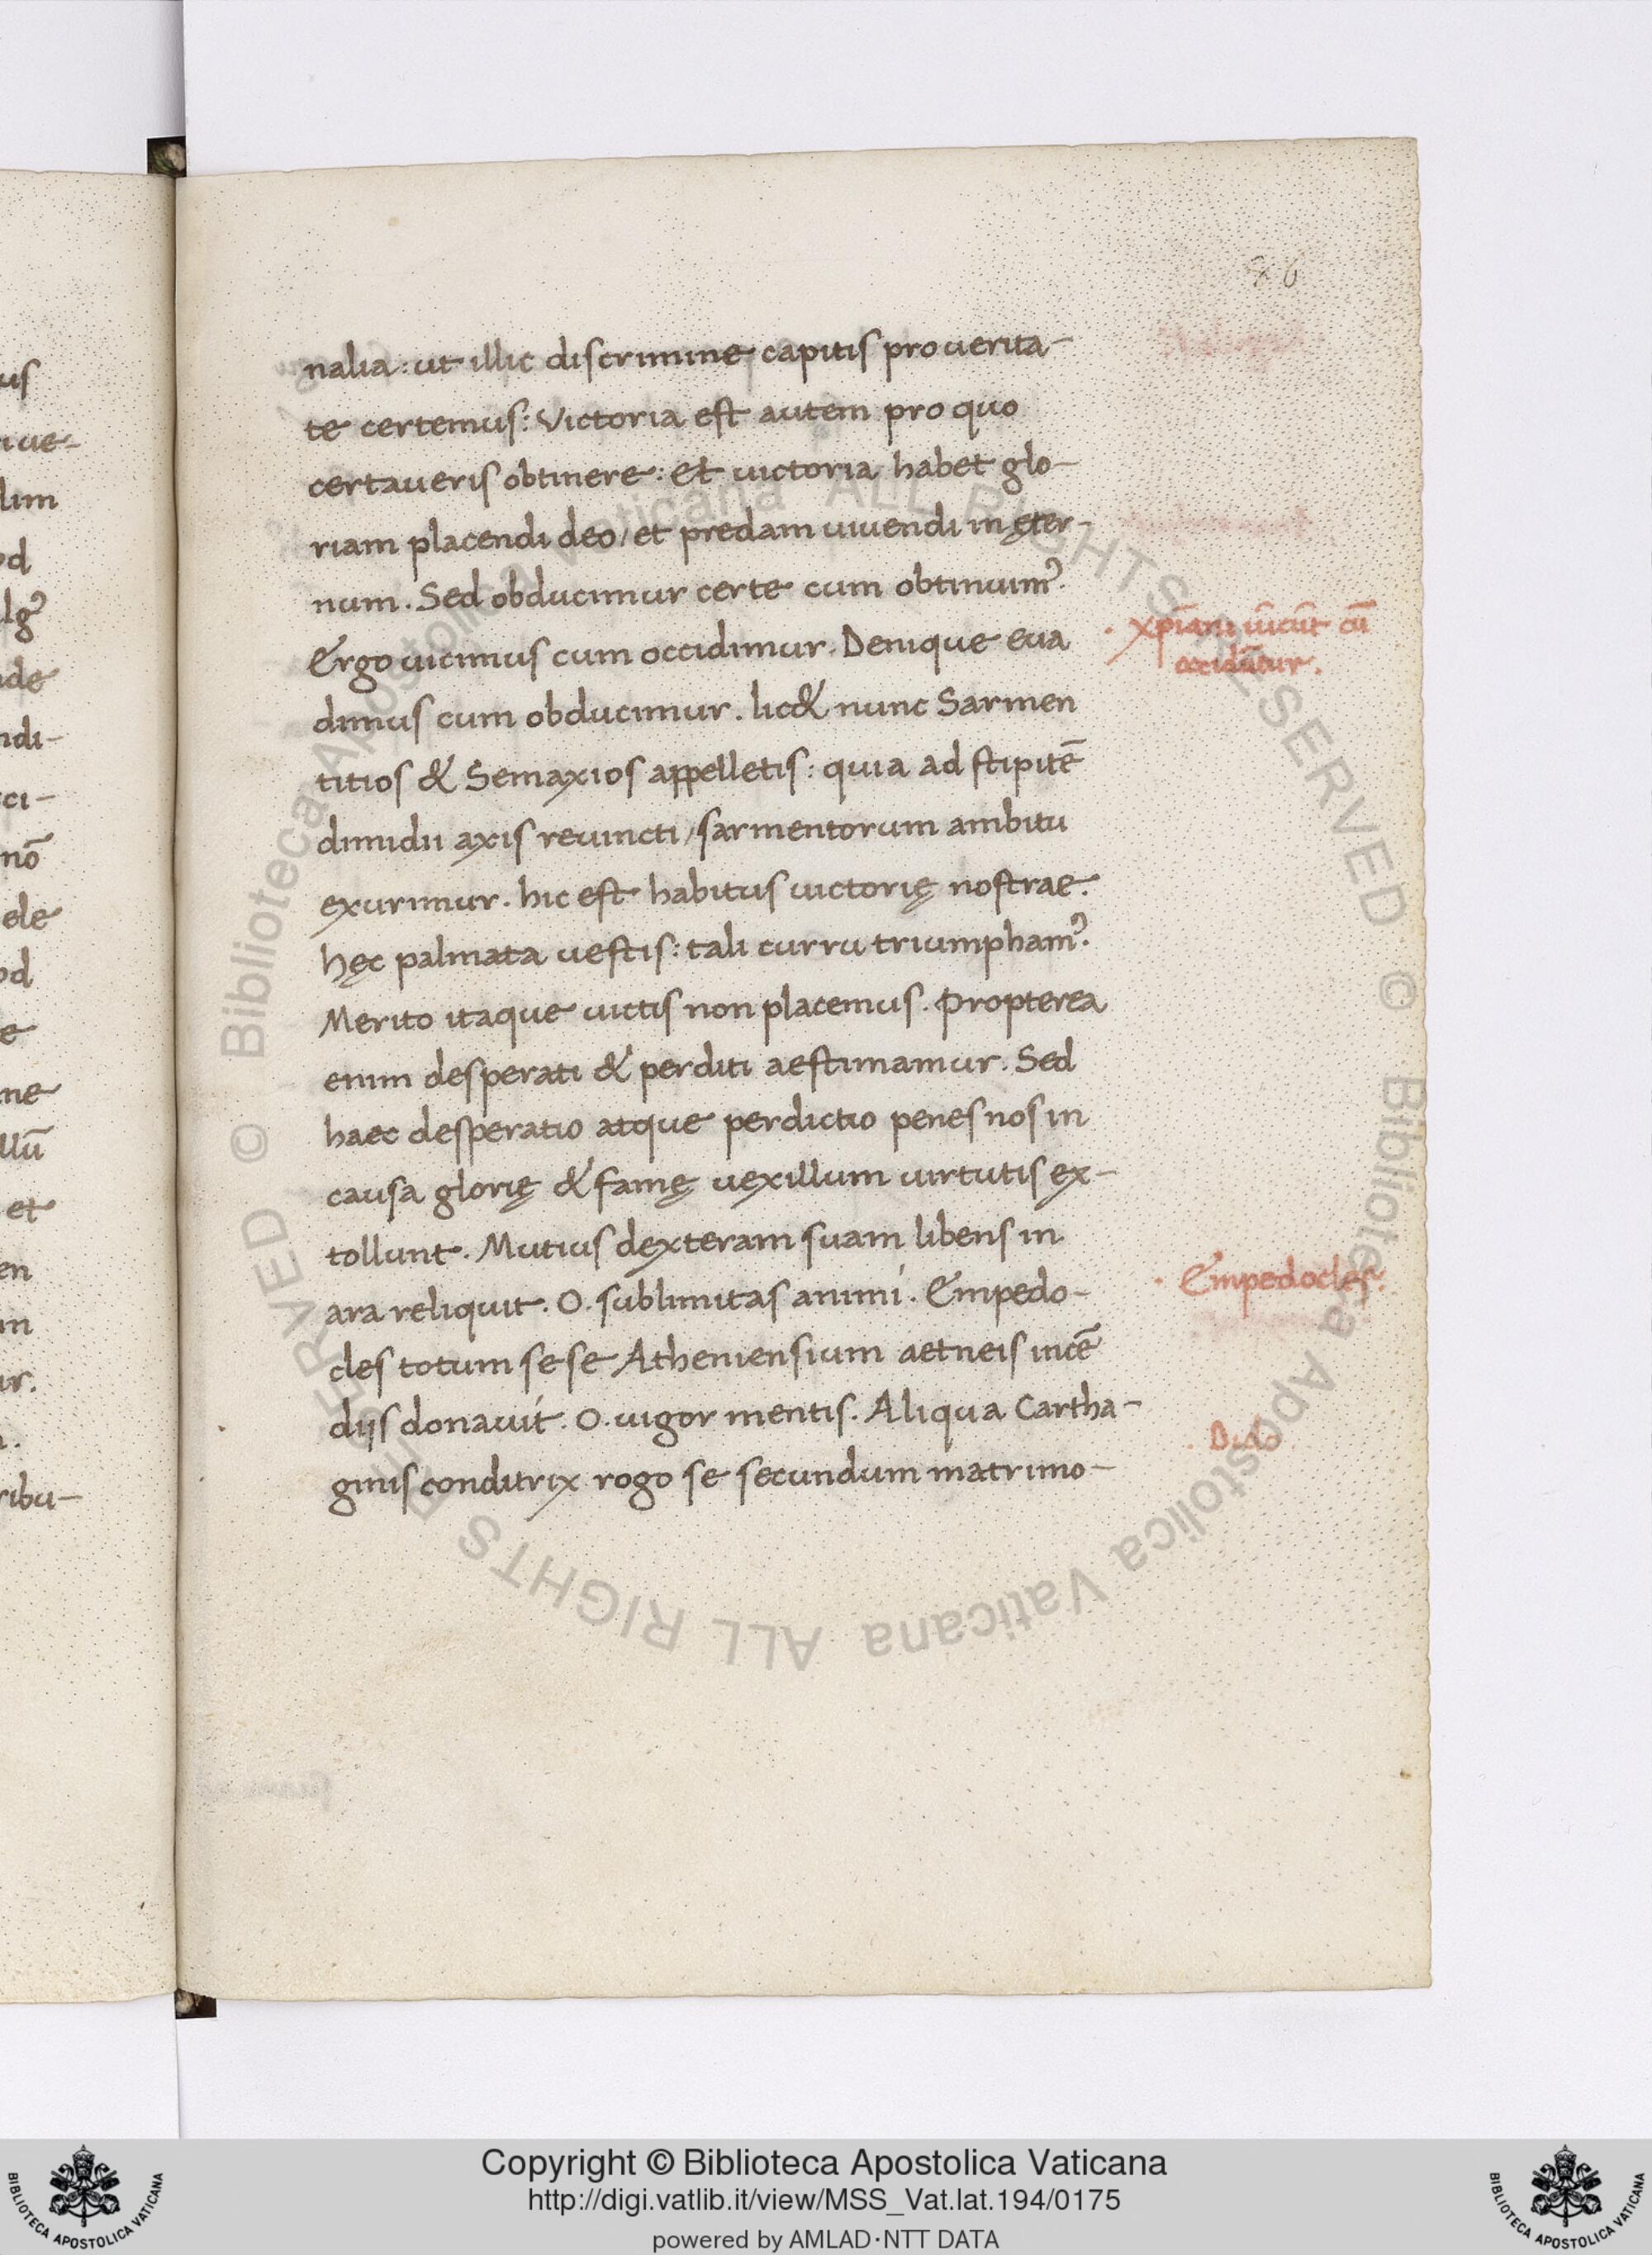 76
nalia: ut illic discrimine capitis pro uerita-
te certemus: Victoria est autem pro quo
certaueris obtinere: Et uictoria habet glo-
riam placendi deo/ et predam uiuendi in ęter-
num. Sed obducimur certe cum obtinuimꝰ.
Ergo uicimus cum occidimur. Denique eua
dimus cum obducimur. lic& nunc Sarmen
titios & Semaxios appelletis: quia ad stipitē
dimidii axis reuincti/ sarmentorum ambitu
exurimur. hic est habitus uictorię nostrae.
hęc palmata uestis: tali curru triumphamꝰ.
Merito itaque uictis non placemus. Propterea
enim desperati & perditi aestimamur. Sed
haec desperatio atque perdictio penes nos in
causa glorię & famę uexillum uirtutis ex-
tollunt. Mutius dexteram suam libens in
ara reliquit. O. sublimitas animi. Empedo-
cles totum sese Atheniensium aetneis incē
diis donauit. O. uigor mentis. Aliqua Cartha-
ginis conditrix rogo se secundum matrimo-
· xp̄iani uīcūt cū
occidūtur.
· Empedocles.
· Dido
us
iue-
lim
od
lgꝰ
nde
ndi-
ci-
nō
ele
od
e
ne
llū
et
en
m
ur.
ribu-
© Biblioteca Apostolica Vaticana ALL RIGHTS RESERVED © Biblioteca Apostolica Vaticana ALL RIGHTS RESERVED
Copyright © Biblioteca Apostolica Vaticana
http://digi.vatlib.it/view/MSS_Vat.lat.194/0175
powered by AMLAD·NTT DATA
BIBLIOTECA APOSTOLICA VATICANA
BIBLIOTECA APOSTOLICA VATICANA